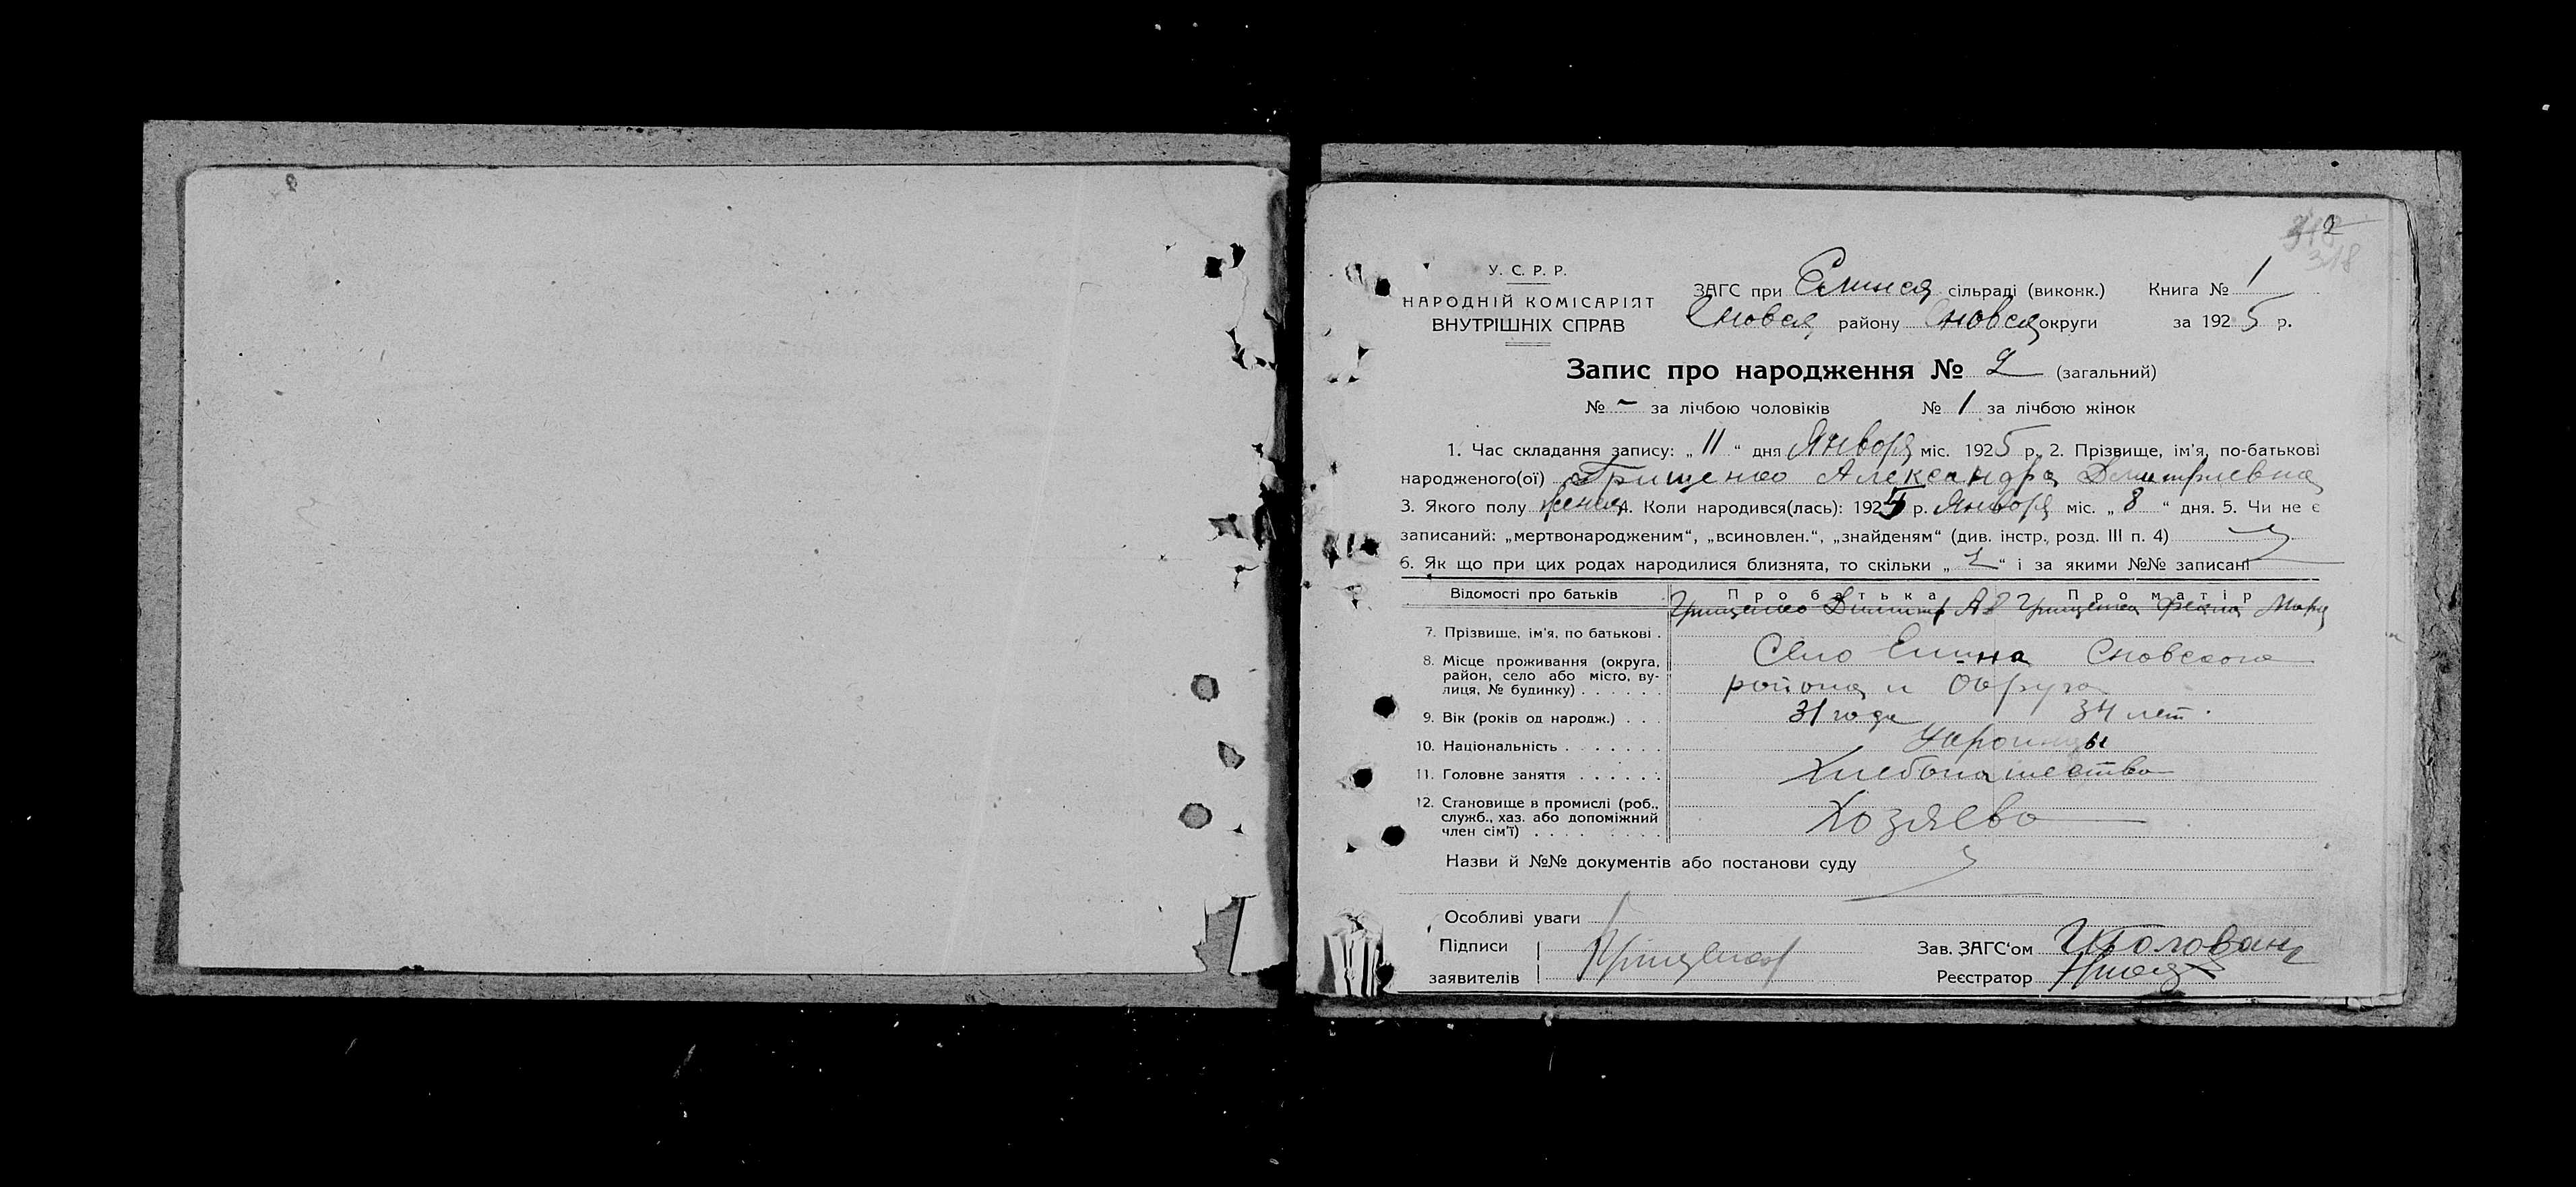 2
318
У. С. Р. Р.
НАРОДНІЙ КОМІСАРІЯТ
ВНУТРІШНІХ СПРАВ
ЗАГС при сільраді (виконк.) Книга № 1
району округи за 1925 р.
Запис про народження № 2 (загальний)
№ - за лічбою чоловіків № 1 за лічбою жінок
1. Час складання запису: „ 11 “ дня Января міс. 1925 р. 2. Прізвище, ім'я, по-батькові
народженого(ої) Грищенко Александра Дмитриевна
3. Якого полу 4. Коли народився(лась): 1925 р. Января міс. „ 8 “ дня. 5. Чи не є
записаний: „мертвонародженим“, „всиновлен.“, „знайденям“ (див. інстр., розд. III п. 4)
6. Як що при цих родах народилися близнята, то скільки „ “ і за якими №№ записані
Відомості про батьків Про батька Про матір
Грищенко Дмитр Грищенко
7. Прізвище, ім'я, по батькові .
8. Місце проживання (округа, район, село або місто, вулиця, № будинку) . . . . . .
Село Елина Сновского
района и Округа
9. Вік (років од народж.) . . . 31 года 34 лет
10. Національність . . . . . . . Украинцы
11. Головне заняття . . . . . . Хлебопашество
12. Становище в промислі (роб., служб., хаз. або допоміжний член сім'ї) . . . . . . . . Хозяева
Назви й №№ документів або постанови суду
Особливі уваги
Підписи
заявителів
Грищенко
Зав. ЗАГС'ом
Реєстратор